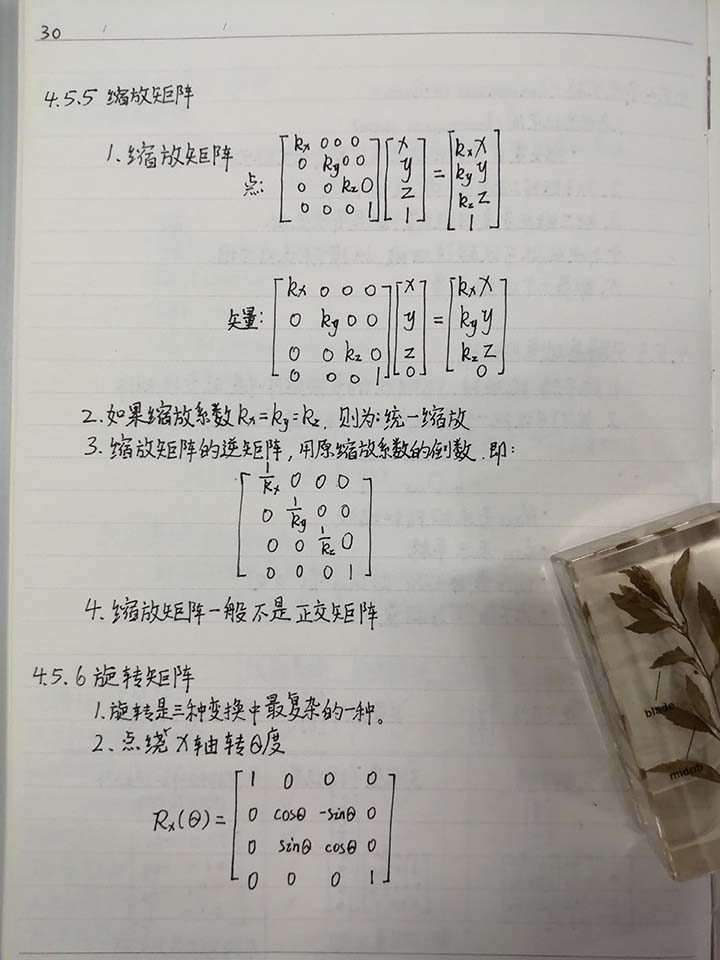 30
4.5.5 缩放矩阵
1. 缩放矩阵
点: [kx 0 0 0; 0 ky 0 0; 0 0 kz 0; 0 0 0 1] [x; y; z; 1] = [kxx; kyy; kzz; 1]
矢量: [kx 0 0 0; 0 ky 0 0; 0 0 kz 0; 0 0 0 1] [x; y; z; 0] = [kxx; kyy; kzz; 0]
2. 如果缩放系数 kx=ky=kz, 则为:统一缩放
3. 缩放矩阵的逆矩阵, 用原缩放系数的倒数. 即:
[1/kx 0 0 0; 0 1/ky 0 0; 0 0 1/kz 0; 0 0 0 1]
4. 缩放矩阵一般不是正交矩阵
4.5.6 旋转矩阵
1. 旋转是三种变换中最复杂的一种。
2. 点绕x轴转θ度
Rx(θ) = [1 0 0 0; 0 cosθ -sinθ 0; 0 sinθ cosθ 0; 0 0 0 1]
blade
midrib